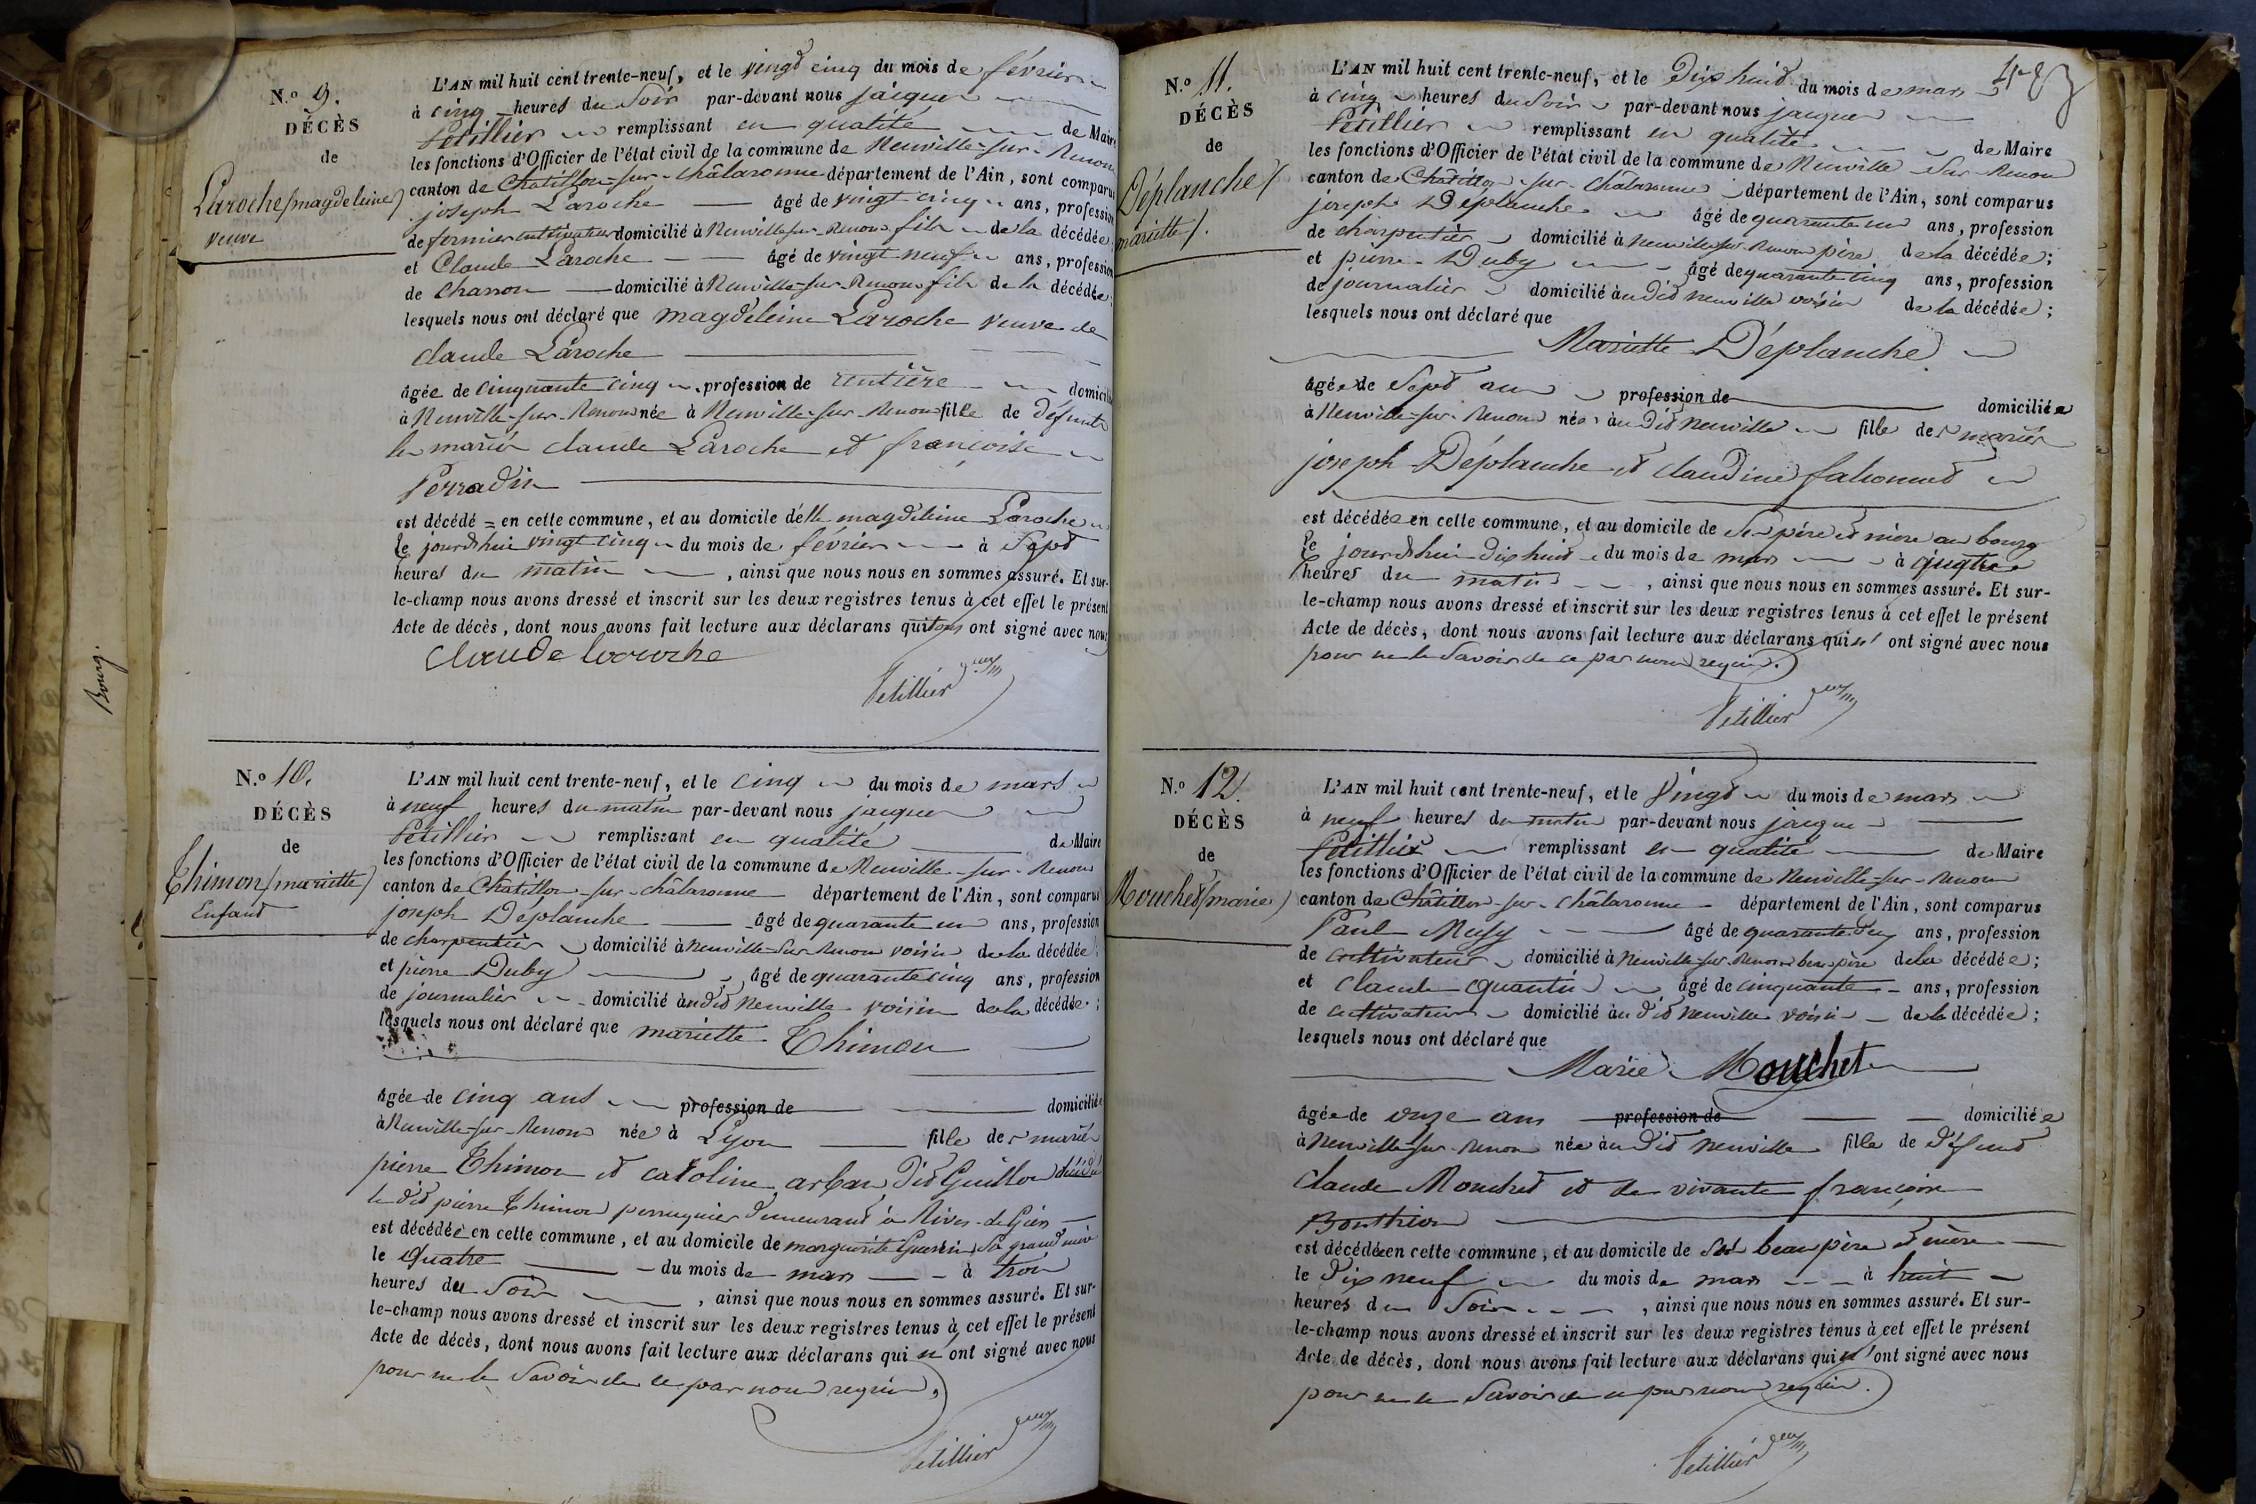 N.º 9.
DÉCÈS
de
Laroche (magdeleine)
veuve
L'AN mil huit cent trente-neuf, et le vingt cinq du mois de février
à cinq heures du Soir par-devant nous jacques
Petillier remplissant en qualité de Maire
les fonctions d'Officier de l'état civil de la commune de Neuville-sur-Renom
canton de Châtillon-sur-châlaronne département de l'Ain, sont comparus
joseph Laroche âgé de vingt cinq ans, profession
de fermier cultivateur domicilié à Neuville sur Renom fils de la décédée;
et Claude Laroche âgé de vingt neuf ans, profession
de Charron domicilié à Neuville-sur-Renom fils de la décédée;
lesquels nous ont déclaré que magdeleine Laroche veuve de
claude Laroche
âgée de cinquante cinq profession de rentière domicili
à Neuville-sur-Renom née à Neuville-sur-Renom fille de défunts
les mariés claude Laroche et francoise
Perradin
est décédé = en cette commune, et au domicile de lle magdeleine Laroche
le jourdhui vingt cinq du mois de février à Sept
heures du matin , ainsi que nous nous en sommes assuré. Et sur-
le-champ nous avons dressé et inscrit sur les deux registres tenus à cet effet le présent
Acte de décès, dont nous avons fait lecture aux déclarans qui tous ont signé avec nous
Claude laroche
Petillier
Bourg.
N.º 10.
DÉCÈS
de
Thimon (mariette)
Enfant
L'AN mil huit cent trente-neuf, et le cinq du mois de mars
à neuf heures du matin par-devant nous jacques
Petillier remplissant en qualité de Maire
les fonctions d'Officier de l'état civil de la commune de Neuville-sur-Renom
canton de Châtillon-sur-châlaronne département de l'Ain, sont comparus
joseph Déplanche âgé de quarante un ans, profession
de charpentier domicilié à Neuville-sur-Renom voisin de la décédée;
et pierre Duby âgé de quarante cinq ans, profession
de journalier domicilié àudit Neuville voisin de la décédée;
lesquels nous ont déclaré que mariette Thimon
âgée de cinq ans profession de domiciliée
à Neuville-sur-Renom née à Lyon fille des mariés
pierre Thimon et caroline arban dit Guillon
le dit pierre Thimon perruquier demeurant à Rives-de-Gier
est décédée en cette commune, et au domicile de marguerite Guerin sa grand mère
le quatre du mois de mars à trois
heures du Soir , ainsi que nous nous en sommes assuré. Et sur-
le-champ nous avons dressé et inscrit sur les deux registres tenus à cet effet le présent
Acte de décès, dont nous avons fait lecture aux déclarans qui n' ont signé avec nous
pour ne le Savoir de ce par nous requis.
Petillier
N.º 11.
DÉCÈS
de
Déplanche (
mariette).
L'AN mil huit cent trente-neuf, et le Dix huit du mois de mars
à cinq heures du Soir par-devant nous jacques
Petillier remplissant en qualité de Maire
les fonctions d'Officier de l'état civil de la commune de Neuville-sur-Renom
canton de Châtillon-sur-châlaronne département de l'Ain, sont comparus
joseph Déplanche âgé de quarante un ans, profession
de charpentier domicilié à Neuville-sur-Renom père de la décédée;
et pierre Duby âgé de quarante cinq ans, profession
de journalier domicilié àudit neuville voisin de la décédée;
lesquels nous ont déclaré que
Mariette Déplanche
âgée de Sept ans profession de domiciliée
à Neuville-sur-Renom née àudit Neuville fille des mariés
joseph Déplanche et claudine
est décédée en cette commune, et au domicile de Ses père et mère au bourg
le jourdhui dix huit du mois de mars à quatre
heures du matin , ainsi que nous nous en sommes assuré. Et sur-
le-champ nous avons dressé et inscrit sur les deux registres tenus à cet effet le présent
Acte de décès, dont nous avons fait lecture aux déclarans qui n' ont signé avec nous
pour ne le Savoir de ce par nous requis.
Petillier
N.º 12.
DÉCÈS
de
Mouchet (marie)
L'AN mil huit cent trente-neuf, et le Vingt du mois de mars
à neuf heures du matin par-devant nous jacques
Petillier remplissant en qualité de Maire
les fonctions d'Officier de l'état civil de la commune de Neuville-sur-Renom
canton de Châtillon-sur-châlaronne département de l'Ain, sont comparus
Paul âgé de quarante ans, profession
de cultivateur domicilié à Neuville-sur-Renom beau père de la décédée;
et claude âgé de cinquante ans, profession
de cultivateur domicilié àudit Neuville voisin de la décédée;
lesquels nous ont déclaré que
Marie Mouchet
âgée de onze ans profession de domiciliée
à Neuville-sur-Renom née àudit Neuville fille de défunt
Claude Mouchet et de vivante françoise
Bonthion
est décédée en cette commune, et au domicile de Ses beau père et mère
le Dix neuf du mois de mars à huit
heures du Soir , ainsi que nous nous en sommes assuré. Et sur-
le-champ nous avons dressé et inscrit sur les deux registres tenus à cet effet le présent
Acte de décès, dont nous avons fait lecture aux déclarans qui n' ont signé avec nous
pour ne le Savoir de ce par nous requis.
Petillier